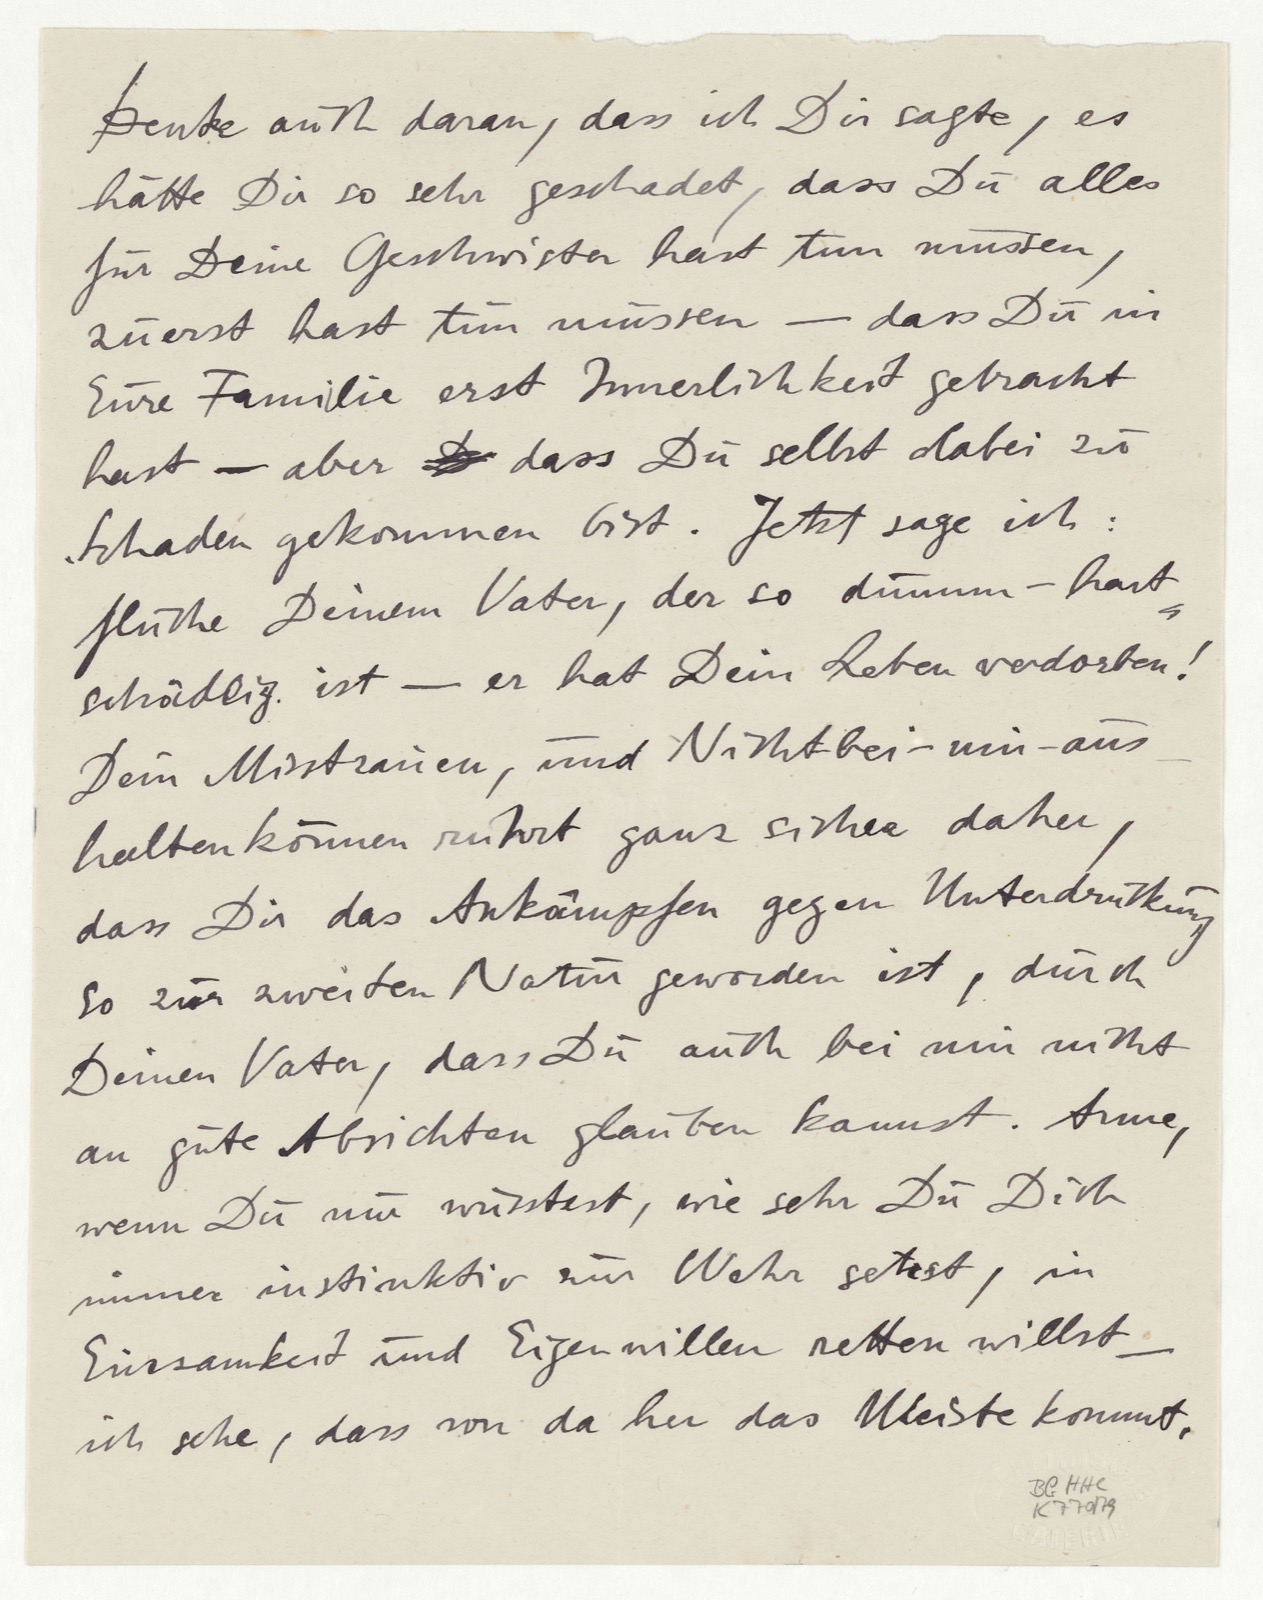 Denke auch daran, dass ich Dir sagte, es
hätte Dir so sehr geschadet, dass Du alles
für Deine Geschwister hast tun müssen,
zuerst hast tun müssen — dass Du in
Eure Familie erst Innerlichkeit gebracht
hast — aber dass Du selbst dabei zu
Schaden gekommen bist. Jetzt sage ich:
fluche Deinem Vater, der so dumm-hart=
schädlig. ist — er hat Dein Leben verdorben!
Dein Misstrauen, und Nichtbei-mir-aus-
haltenkönnen rührt ganz sicher daher,
dass Dir das Ankämpfen gegen Unterdrückung
so zur zweiten Natur geworden ist, durch
Deinen Vater, dass Du auch bei mir nicht
an gute Absichten glauben kannst. Arme,
wenn Du nur wüsstest, wie sehr Du Dich
immer instinktiv zur Wehr setzst, in
Einsamkeit und Eigenwillen retten willst —
ich sehe, dass von da her das Meiste kommt.
BG HHC
K 770/79